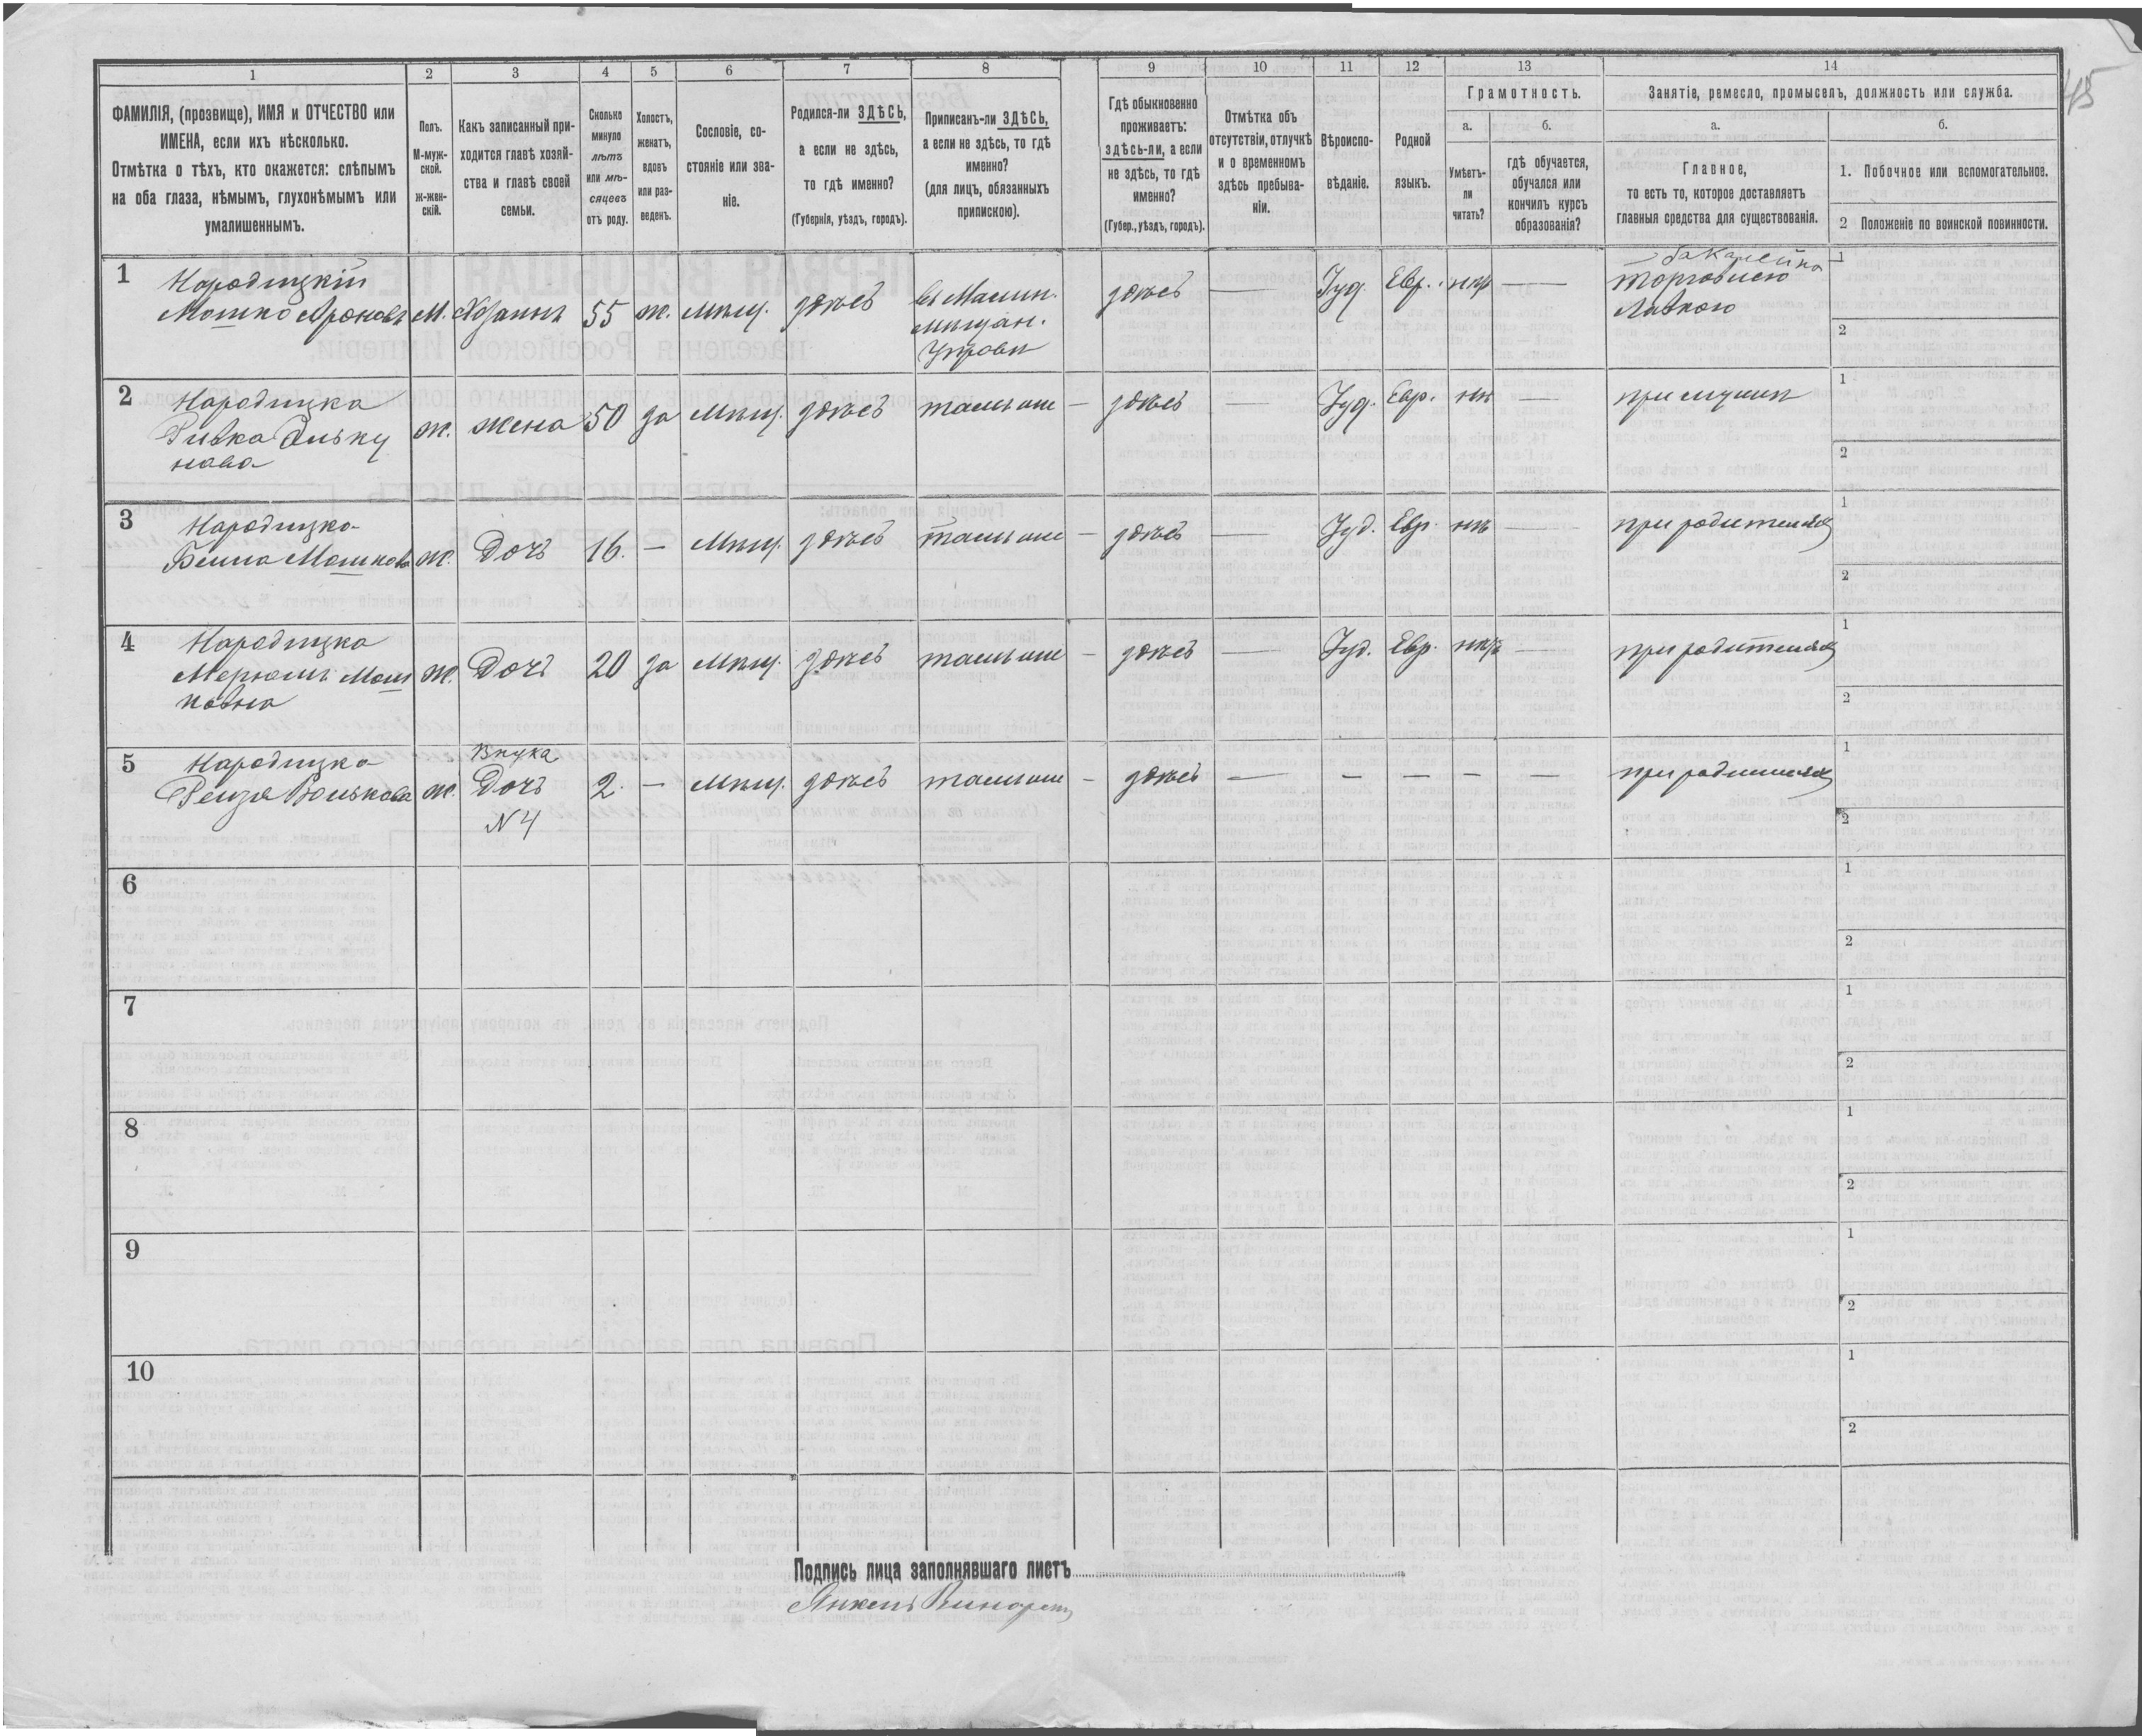 45
1 2 3 4 5 6 7 8 9 10 11 12 13 14
ФАМИЛІЯ, (прозвище), ИМЯ и ОТЧЕСТВО или
ИМЕНА, если ихъ нѣсколько.
Отмѣтка о тѣхъ, кто окажется: слѣпымъ
на оба глаза, нѣмымъ, глухонѣмымъ или
умалишеннымъ.
Полъ.
М-муж-
ской.
ж-жен-
скій.
Какъ записанный при-
ходится главѣ хозяй-
ства и главѣ своей
семьи.
Сколько
минуло
лѣтъ
или мѣ-
сяцевъ
отъ роду.
Холостъ,
женатъ,
вдовъ
или раз-
веденъ.
Сословіе, со-
стояніе или зва-
ніе.
Родился-ли ЗДѢСЬ,
а если не здѣсь,
то гдѣ именно?
(Губернія, уѣздъ, городъ).
Приписанъ-ли ЗДѢСЬ,
а если не здѣсь, то гдѣ
именно?
(для лицъ, обязанныхъ
припискою).
Гдѣ обыкновенно
проживаетъ:
здѣсь-ли, а если
не здѣсь, то гдѣ
именно?
(Губер., уѣздъ, городъ).
Отмѣтка объ
отсутствіи, отлучкѣ
и о временномъ
здѣсь пребыва-
ніи.
Вѣроиспо-
вѣданіе.
Родной
языкъ.
Грамотность.
а.
Умѣетъ-
ли
читать?
б.
гдѣ обучается,
обучался или
кончилъ курсъ
образованія?
Занятіе, ремесло, промыселъ, должность или служба.
а.
Главное,
то есть то, которое доставляетъ
главныя средства для существованія.
б.
1. Побочное или вспомогательное.
2 Положеніе по воинской повинности.
1
Народицкій
Мошко Ароновъ
М.
Хозяинъ
55
ж.
мѣщ.
здѣсь
въ
мѣщан.
Управѣ
здѣсь
—
Іуд.
Евр.
—
бакалейно
торговлею
Лавкою
1
2
2
Народицка
Ривка
нова
ж.
жена
50
за
мѣщ.
здѣсь
тамъ же
—
здѣсь
—
Іуд.
Евр.
нѣ
—
при мужѣ
1
2
3
Народицка
Бейла Мошкова
ж.
Дочь
16.
—
Мѣщ.
здѣсь
тамъ же
—
здѣсь
—
Іуд.
Евр.
нѣ
—
при родителях
1
2
4
Народицка
Мош
ковна
ж.
Дочь
20
за
Мѣщ.
здѣсь
тамъ же
—
здѣсь
—
Іуд.
Евр.
—
при родителях
1
2
5
Народицка
ж.
Внука
Дочь
N 4
2.
—
Мѣщ.
здѣсь
тамъ же
—
здѣсь
—
—
—
—
—
при родителях
1
2
6
1
2
7
1
2
8
1
2
9
1
2
10
1
2
Подпись лица заполнявшаго листъ
Янкель